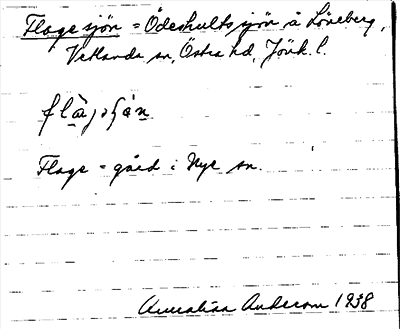 Flagesjön = Ödeshultssjön å Löneberg,
Vetlanda sn, Östra hd, Jönk. l.
Flage = gård i Nye sn.
Anderson 1938